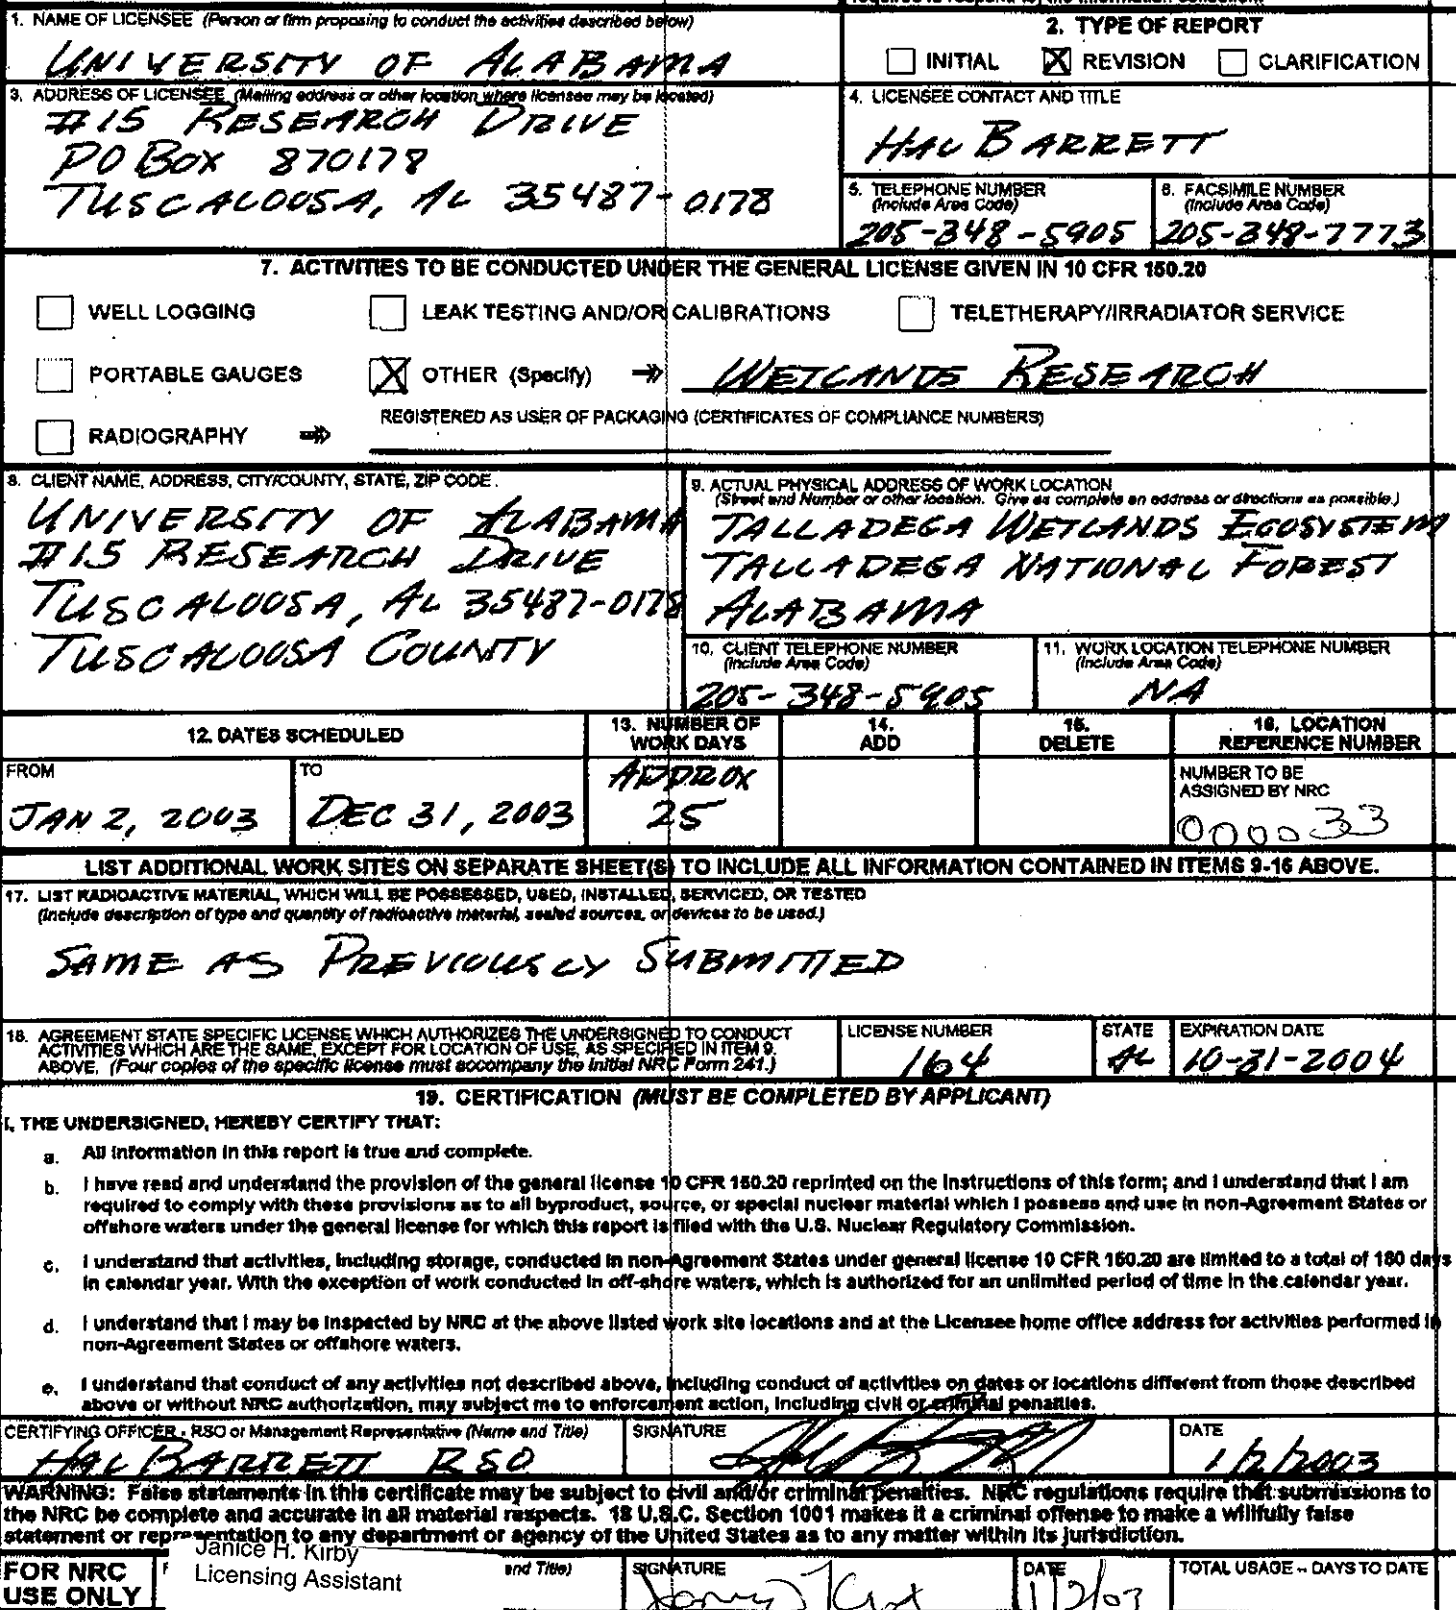 1. NAME OF LICENSEE (Person or firm proposing to conduct the activities described below)
UNIVERSITY OF ALABAMA
2. TYPE OF REPORT
INITIAL REVISION CLARIFICATION
3. ADDRESS OF LICENSEE (Mailing address or other location where licensee may be located)
#15 RESEARCH DRIVE
PO BOX 870178
TUSCALOOSA, AL 35487-0178
4. LICENSEE CONTACT AND TITLE
HAL BARRETT
5. TELEPHONE NUMBER
(Include Area Code)
205-348-5905
6. FACSIMILE NUMBER
(Include Area Code)
205-348-7773
7. ACTIVITIES TO BE CONDUCTED UNDER THE GENERAL LICENSE GIVEN IN 10 CFR 150.20
WELL LOGGING LEAK TESTING AND/OR CALIBRATIONS TELETHERAPY/IRRADIATOR SERVICE
PORTABLE GAUGES OTHER (Specify) WETLANDS RESEARCH
REGISTERED AS USER OF PACKAGING (CERTIFICATES OF COMPLIANCE NUMBERS)
RADIOGRAPHY
8. CLIENT NAME, ADDRESS, CITY/COUNTY, STATE, ZIP CODE.
UNIVERSITY OF ALABAMA
#15 RESEARCH DRIVE
TUSCALOOSA, AL 35487-0178
TUSCALOOSA COUNTY
9. ACTUAL PHYSICAL ADDRESS OF WORK LOCATION
(Street and Number or other location. Give as complete an address or directions as possible.)
TALLADEGA WETLANDS ECOSYSTEM
TALLADEGA NATIONAL FOREST
ALABAMA
10. CLIENT TELEPHONE NUMBER
(Include Area Code)
205-348-5905
11. WORK LOCATION TELEPHONE NUMBER
(Include Area Code)
NA
12. DATES SCHEDULED
FROM
JAN 2, 2003
TO
DEC 31, 2003
13. NUMBER OF
WORK DAYS
APPROX
25
14.
ADD
15.
DELETE
16. LOCATION
REFERENCE NUMBER
NUMBER TO BE
ASSIGNED BY NRC
000033
LIST ADDITIONAL WORK SITES ON SEPARATE SHEET(S) TO INCLUDE ALL INFORMATION CONTAINED IN ITEMS 9-16 ABOVE.
17. LIST RADIOACTIVE MATERIAL, WHICH WILL BE POSSESSED, USED, INSTALLED, SERVICED, OR TESTED
(Include description of type and quantity of radioactive material, sealed sources, or devices to be used.)
SAME AS PREVIOUSLY SUBMITTED
18. AGREEMENT STATE SPECIFIC LICENSE WHICH AUTHORIZES THE UNDERSIGNED TO CONDUCT
ACTIVITIES WHICH ARE THE SAME, EXCEPT FOR LOCATION OF USE, AS SPECIFIED IN ITEM 9.
ABOVE. (Four copies of the specific license must accompany the initial NRC Form 241.)
LICENSE NUMBER
164
STATE
AL
EXPIRATION DATE
10-31-2004
19. CERTIFICATION (MUST BE COMPLETED BY APPLICANT)
I, THE UNDERSIGNED, HEREBY CERTIFY THAT:
a. All information in this report is true and complete.
b. I have read and understand the provision of the general license 10 CFR 150.20 reprinted on the instructions of this form; and I understand that I am
required to comply with these provisions as to all byproduct, source, or special nuclear material which I possess and use in non-Agreement States or
offshore waters under the general license for which this report is filed with the U.S. Nuclear Regulatory Commission.
c. I understand that activities, including storage, conducted in non-Agreement States under general license 10 CFR 150.20 are limited to a total of 180 days
in calendar year. With the exception of work conducted in off-shore waters, which is authorized for an unlimited period of time in the calendar year.
d. I understand that I may be inspected by NRC at the above listed work site locations and at the Licensee home office address for activities performed in
non-Agreement States or offshore waters.
e. I understand that conduct of any activities not described above, including conduct of activities on dates or locations different from those described
above or without NRC authorization, may subject me to enforcement action, including civil or criminal penalties.
CERTIFYING OFFICER - RSO or Management Representative (Name and Title)
HAL BARRETT RSO
SIGNATURE
DATE
1/2/2003
WARNING: False statements in this certificate may be subject to civil and/or criminal penalties. NRC regulations require that submissions to
the NRC be complete and accurate in all material respects. 18 U.S.C. Section 1001 makes it a criminal offense to make a willfully false
statement or representation to any department or agency of the United States as to any matter within its jurisdiction.
FOR NRC
USE ONLY
Janice H. Kirby
Licensing Assistant
and Title)
SIGNATURE
DATE
1/2/03
TOTAL USAGE - DAYS TO DATE